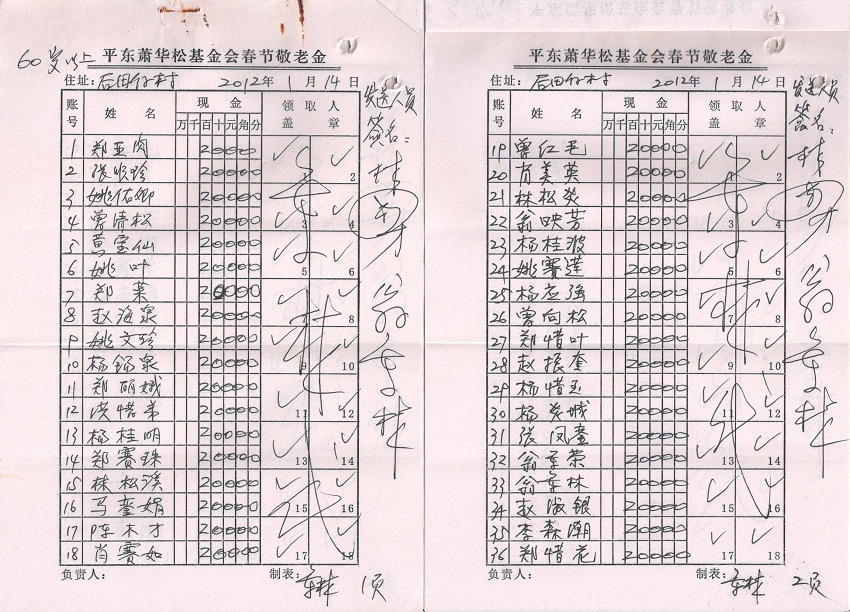 60岁以上 平东萧华松基金会春节敬老金
住址：后田仔村 2012年1月14日
账号 姓名 现金 领取人盖章
万千百十元角分
发送人员签名：
1 郑亚肉 20000
2 张顺珍 20000
3 姚佑卿 20000
4 曾清松 20000
5 黄宝仙 20000
6 姚叶 20000
7 郑菜 20000
8 赵海泉 20000
9 姚文珍 20000
10 杨锡泉 20000
11 郑丽娥 20000
12 洪惜弟 20000
13 杨桂明 20000
14 郑赛珠 20000
15 林松溪 20000
16 马銮娟 20000
17 陈木才 20000
18 肖赛如 20000
1 2
3 4
5 6
7 8
9 10
11 12
13 14
15 16
17 18
负责人： 制表： 1页
平东萧华松基金会春节敬老金
住址：后田仔村 2012年1月14日
账号 姓名 现金 领取人盖章
万千百十元角分
发送人员签名：
19 曾红毛 20000
20 肖美英 20000
21 林松炎 20000
22 翁映芳 20000
23 杨桂波 20000
24 姚赛莲 20000
25 杨应强 20000
26 曾向松 20000
27 郑惜叶 20000
28 赵振奎 20000
29 杨惜玉 20000
30 杨炎城 20000
31 张凤銮 20000
32 翁季荣 20000
33 翁季林 20000
34 赵淑银 20000
35 李森潮 20000
36 郑惜花 20000
1 2
3 4
5 6
7 8
9 10
11 12
13 14
15 16
17 18
负责人： 制表： 2页